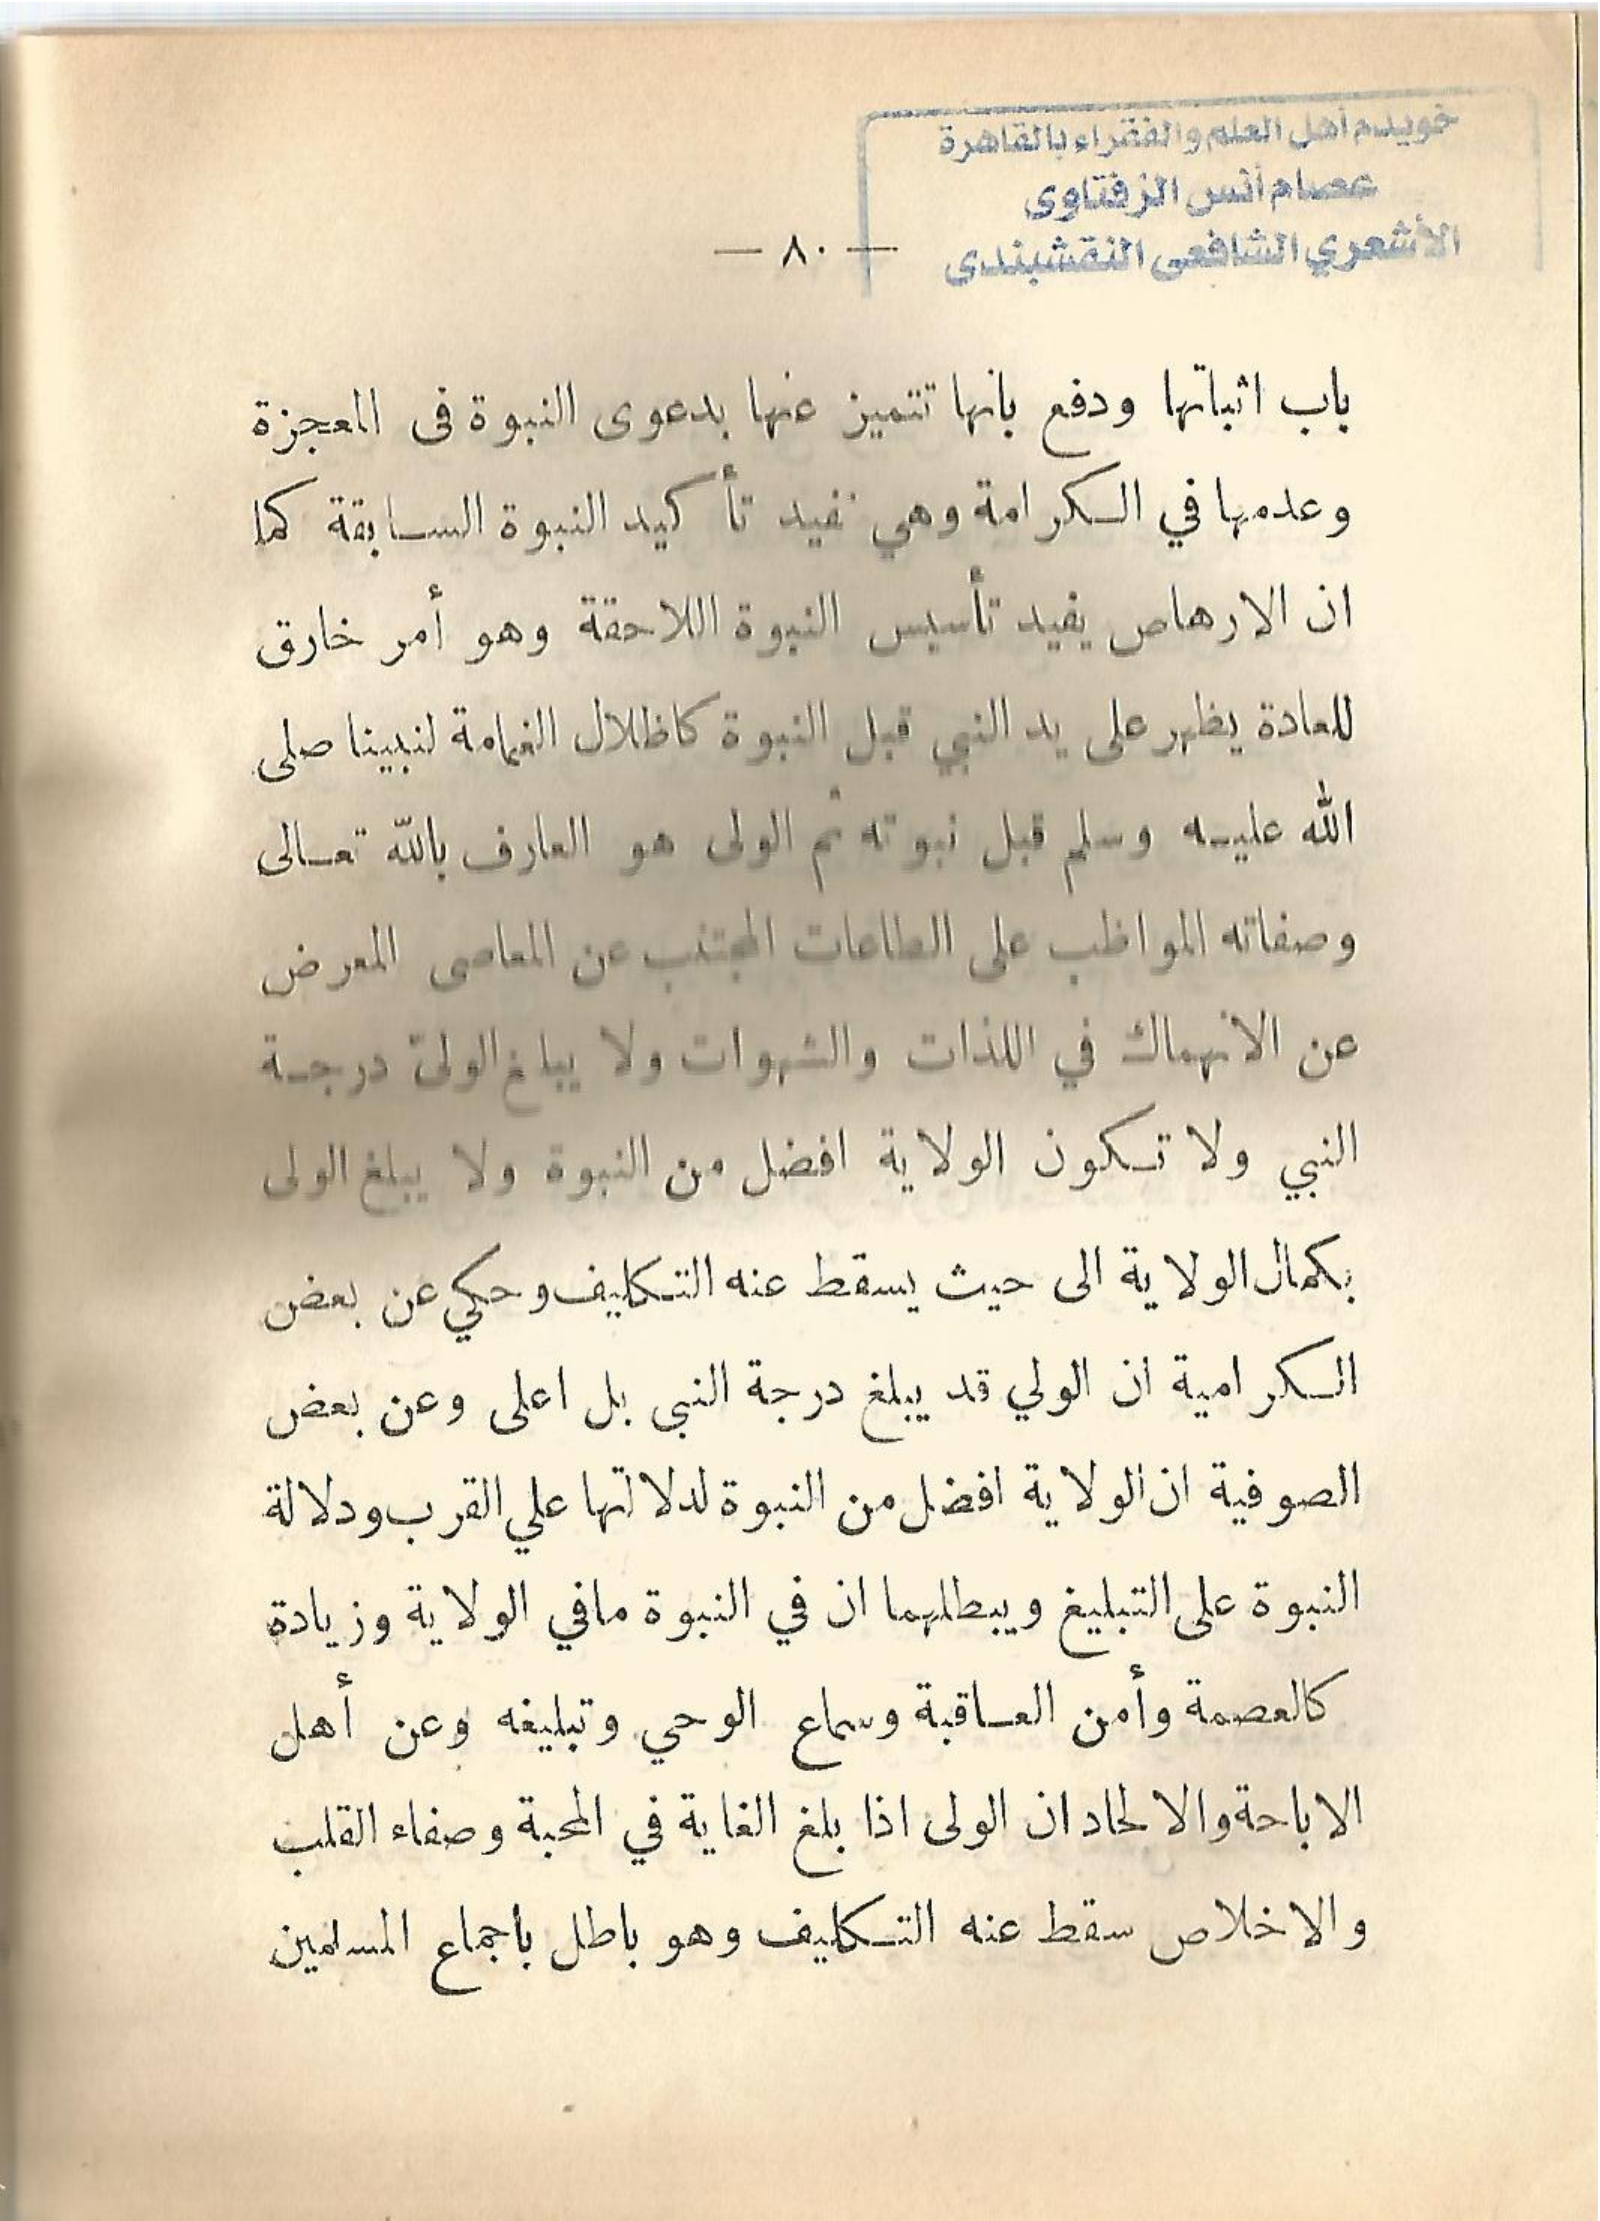 خويدم أهل العلم والفقراء بالقاهرة
عصام أنس الزفتاوى
الأشعري الشافعى النقشبندى
— ٨٠ —
باب اثباتها ودفع بانها تتميز عنها بدعوى النبوة فى المعجزة
وعدمها في الكرامة وهي تفيد تأكيد النبوة السابقة كما
ان الارهاص يفيد تأسيس النبوة اللاحقة وهو أمر خارق
للعادة يظهر على يد النبي قبل النبوة كاظلال الغمامة لنبينا صلى
الله عليه وسلم قبل نبوته ثم الولى هو العارف بالله تعالى
وصفاته المواظب على الطاعات المجتنب عن المعاصى المعرض
عن الانهماك في اللذات والشهوات ولا يبلغ الولىّ درجة
النبي ولا تكون الولاية افضل من النبوة ولا يبلغ الولى
بكمال الولاية الى حيث يسقط عنه التكليف وحكي عن بعض
الكرامية ان الولي قد يبلغ درجة النبى بل اعلى وعن بعض
الصوفية ان الولاية افضل من النبوة لدلالتها علي القرب ودلالة
النبوة على التبليغ ويبطلهما ان في النبوة مافي الولاية وزيادة
كالعصمة وأمن العاقبة وسماع الوحي وتبليغه وعن أهل
الاباحة والالحاد ان الولى اذا بلغ الغاية في المحبة وصفاء القلب
والاخلاص سقط عنه التكليف وهو باطل بأجماع المسلمين